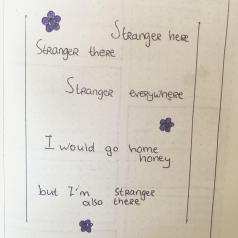 Stranger here
Stranger there
Stranger everywhere
I would go home
honey
but I'm stranger
also there